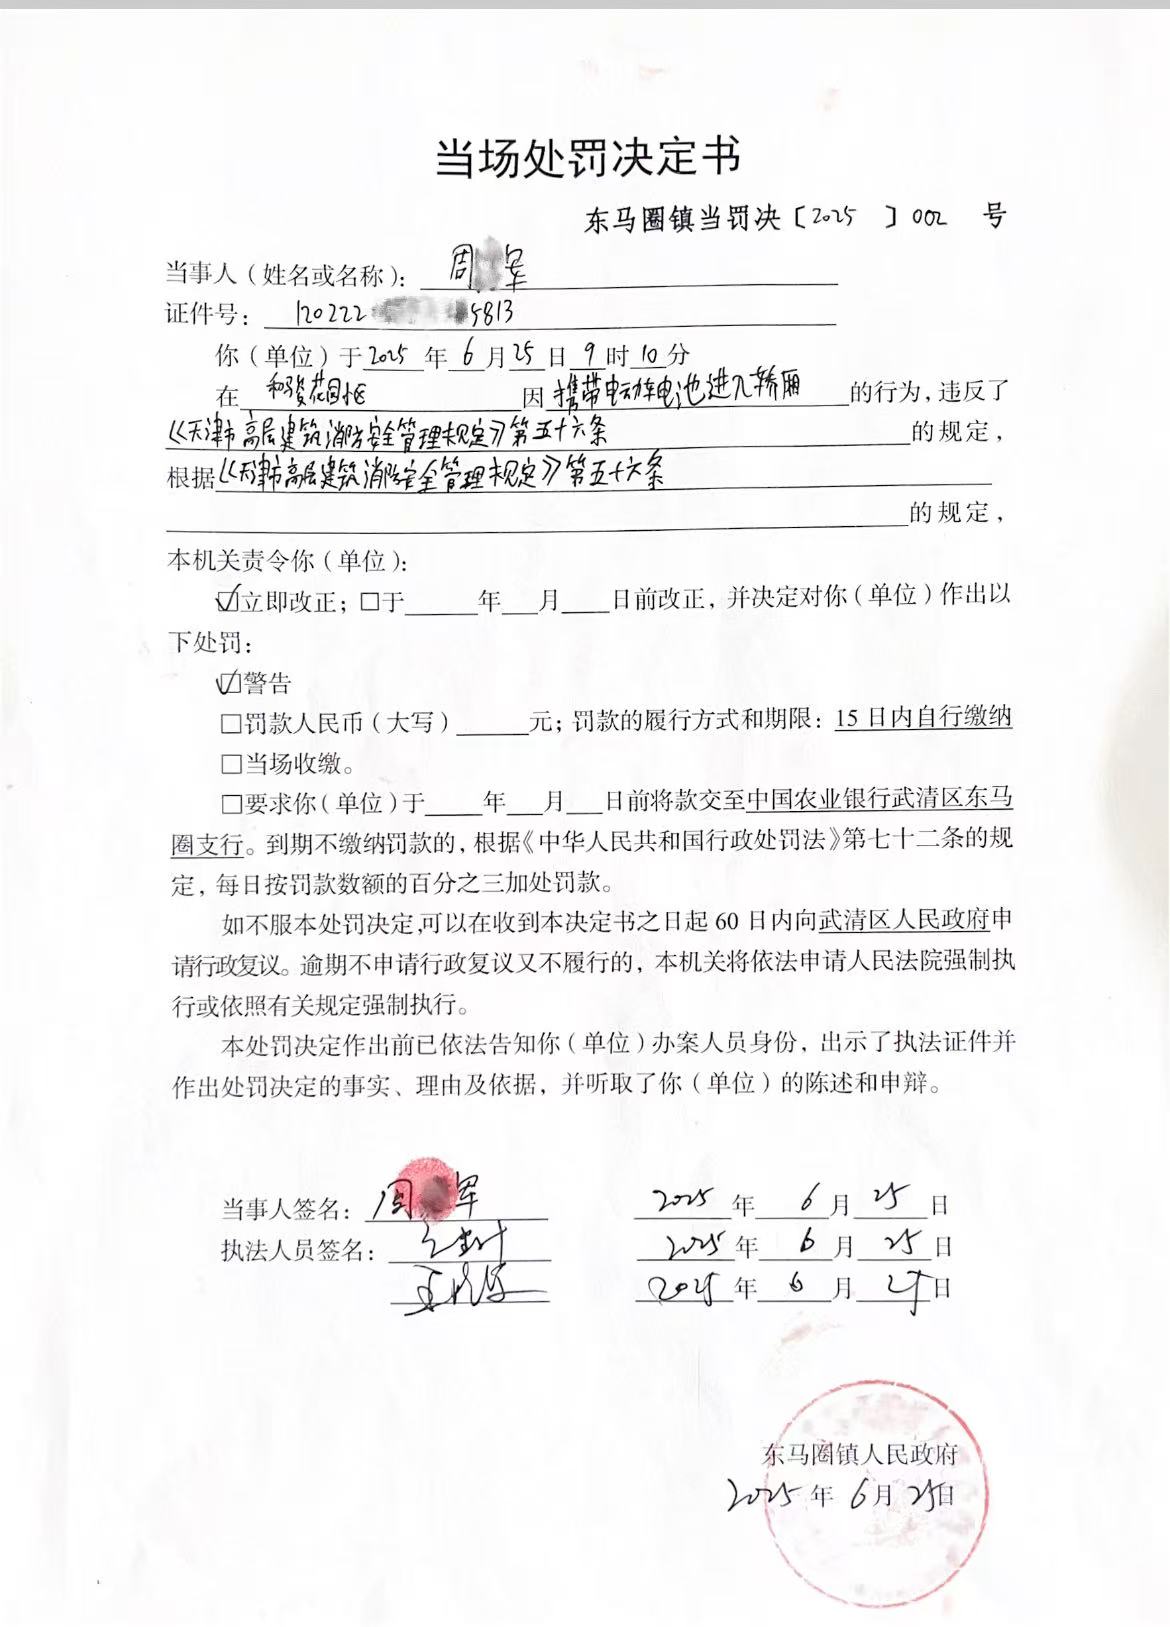 当场处罚决定书
东马圈镇当罚决〔2025 〕002 号
当事人（姓名或名称）：周 军
证件号：120222 5813
你（单位）于2025年6月25日9时10分
在 和 花园小区 因携带电动车电池进入轿厢的行为，违反了
《天津市高层建筑消防安全管理规定》第五十六条的规定，
根据《天津市高层建筑消防安全管理规定》第五十六条
的规定，
本机关责令你（单位）：
☑立即改正；□于______年___月____日前改正，并决定对你（单位）作出以
下处罚：
☑警告
□罚款人民币（大写）______元；罚款的履行方式和期限：15日内自行缴纳
□当场收缴。
□要求你（单位）于____年___月___日前将款交至中国农业银行武清区东马
圈支行。到期不缴纳罚款的，根据《中华人民共和国行政处罚法》第七十二条的规
定，每日按罚款数额的百分之三加处罚款。
如不服本处罚决定,可以在收到本决定书之日起60日内向武清区人民政府申
请行政复议。逾期不申请行政复议又不履行的，本机关将依法申请人民法院强制执
行或依照有关规定强制执行。
本处罚决定作出前已依法告知你（单位）办案人员身份，出示了执法证件并
作出处罚决定的事实、理由及依据，并听取了你（单位）的陈述和申辩。
当事人签名：周 军 2025年6月25日
执法人员签名： 2025年6月25日
王 2025年6月25日
东马圈镇人民政府
2025年6月25日